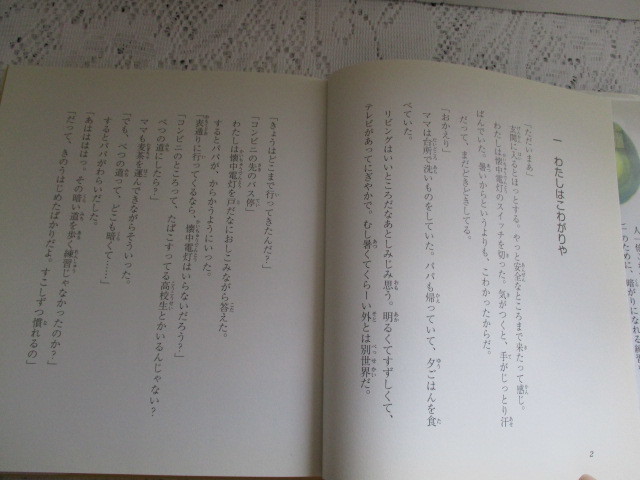 一 わたしはこわがりや
「ただいまあ」
玄関に入るとほっとする。やっと安全なところまで来たって感じ。
わたしは懐中電灯のスイッチを切った。気がつくと、手がじっとり汗
ばんでいた。暑いからというよりも、こわかったからだ。
だって、まだどきどきしてる。
「おかえり」
ママは台所で洗いものをしていた。パパも帰っていて、夕ごはんを食
べていた。
リビングはいいところだなあとしみじみ思う。明るくてすずしくて、
テレビがあってにぎやかで。むし暑くてくらーい外とは別世界だ。
2
「きょうはどこまで行ってきたんだ？」
「コンビニの先のバス停」
わたしは懐中電灯を戸だなにおしこみながら答えた。
するとパパが、からかうようにいった。
「表通りに行ってくるなら、懐中電灯はいらないだろう？」
「コンビニのところって、たばこすってる高校生とかいるんじゃない？
べつの道にしたら？」
ママも麦茶を運んできながらそういった。
「でも、べつの道って、どこも暗くて……」
するとパパがわらいだした。
「あはははっ。その暗い道を歩く練習じゃなかったのか？」
「だって、きのうはじめたばかりだよ。すこしずつ慣れるの」
このために、暗がりになれる練習